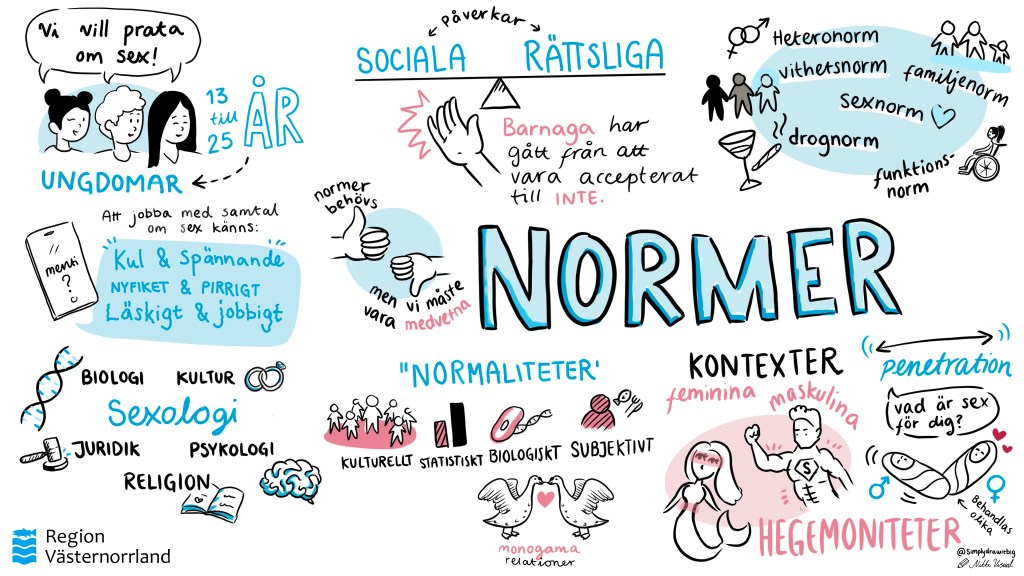 Vi vill prata
om sex!
13
till
25
ÅR
UNGDOMAR
påverkar
SOCIALA RÄTTSLIGA
Barnaga har
gått från att
vara accepterat
till INTE.
Heteronorm
vithetsnorm
familjenorm
sexnorm
drognorm
funktions-
norm
Att jobba med samtal
om sex känns:
menti
?
Kul & Spännande
NYFIKET & PIRRIGT
Läskigt & jobbigt
normer
behövs
men vi måste
vara medvetna
NORMER
BIOLOGI KULTUR
Sexologi
JURIDIK PSYKOLOGI
RELIGION
"NORMALITETER'
KULTURELLT STATISTISKT BIOLOGISKT SUBJEKTIVT
monogama
relationer
KONTEXTER
feminina maskulina
S
HEGEMONITETER
penetration
vad är sex
för dig?
♂ ♀
Behandlas
olika
Region
Västernorrland
@simplydrawitbig
Nikki Visual